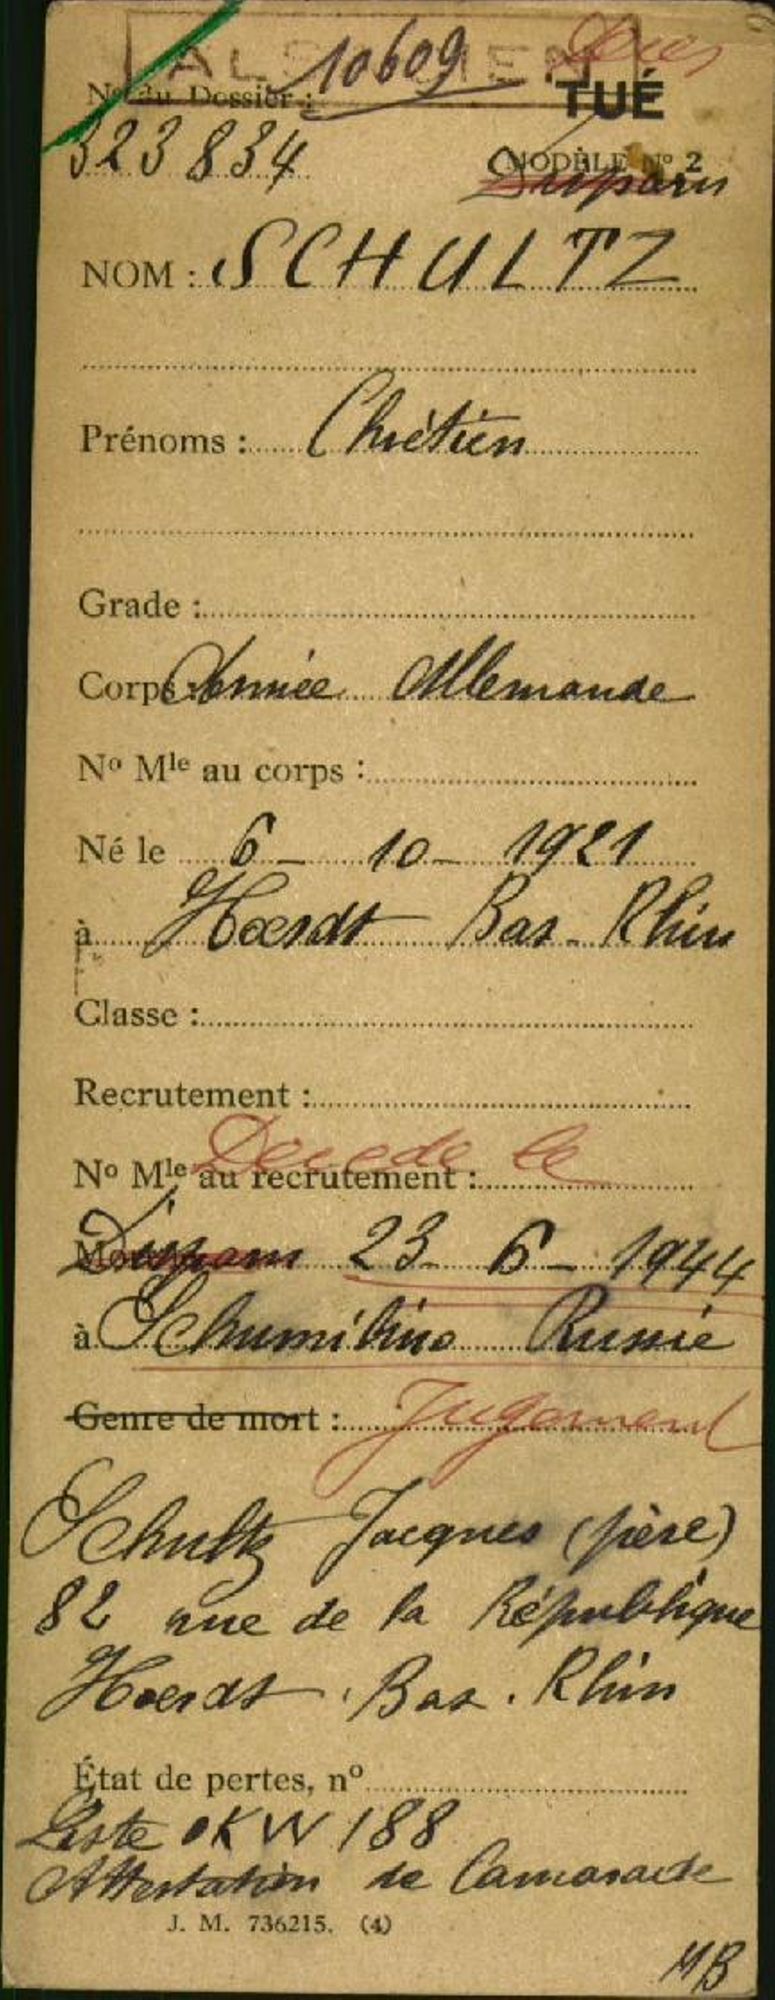 ALSACIEN
10609
TUÉ
No du Dossier :
323834
MODÈLE No 2
Disparu
NOM : SCHULTZ
Prénoms : Chrétien
Grade :
Corps : Armée Allemande
No Mle au corps :
Né le 6 - 10 - 1921
à Hoerdt Bas-Rhin
Classe :
Recrutement :
Décédé le
No Mle au recrutement :
Disparu 23 - 6 - 1944
à Schumilino Russie
Genre de mort : Jugement
Schultz Jacques (père)
82 rue de la République
Hoerdt. Bas. Rhin
État de pertes, no
Liste OKW 188
Attestation de Camarade
J. M. 736215. (4)
MB